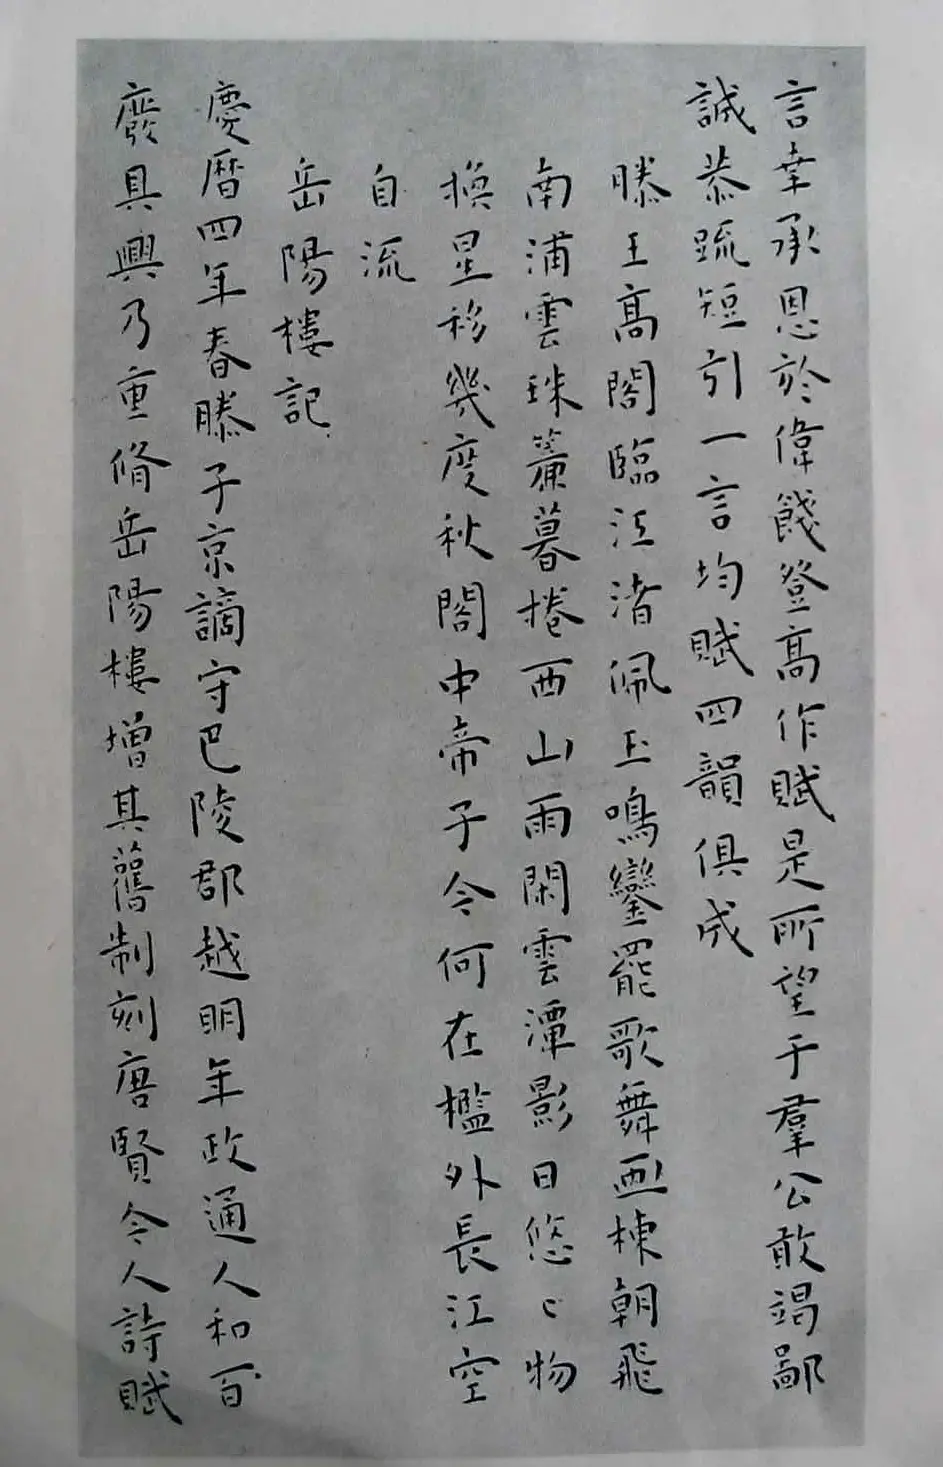 言幸承恩於偉餞登高作賦是所望于羣公敢竭鄙
誠恭疏短引一言均賦四韻俱成
滕王高閣臨江渚佩玉鳴鑾罷歌舞畫棟朝飛
南浦雲珠簾暮捲西山雨閑雲潭影日悠〻物
換星移幾度秋閣中帝子今何在檻外長江空
自流
岳陽樓記
慶曆四年春滕子京謫守巴陵郡越明年政通人和百
廢具興乃重脩岳陽樓增其舊制刻唐賢今人詩賦